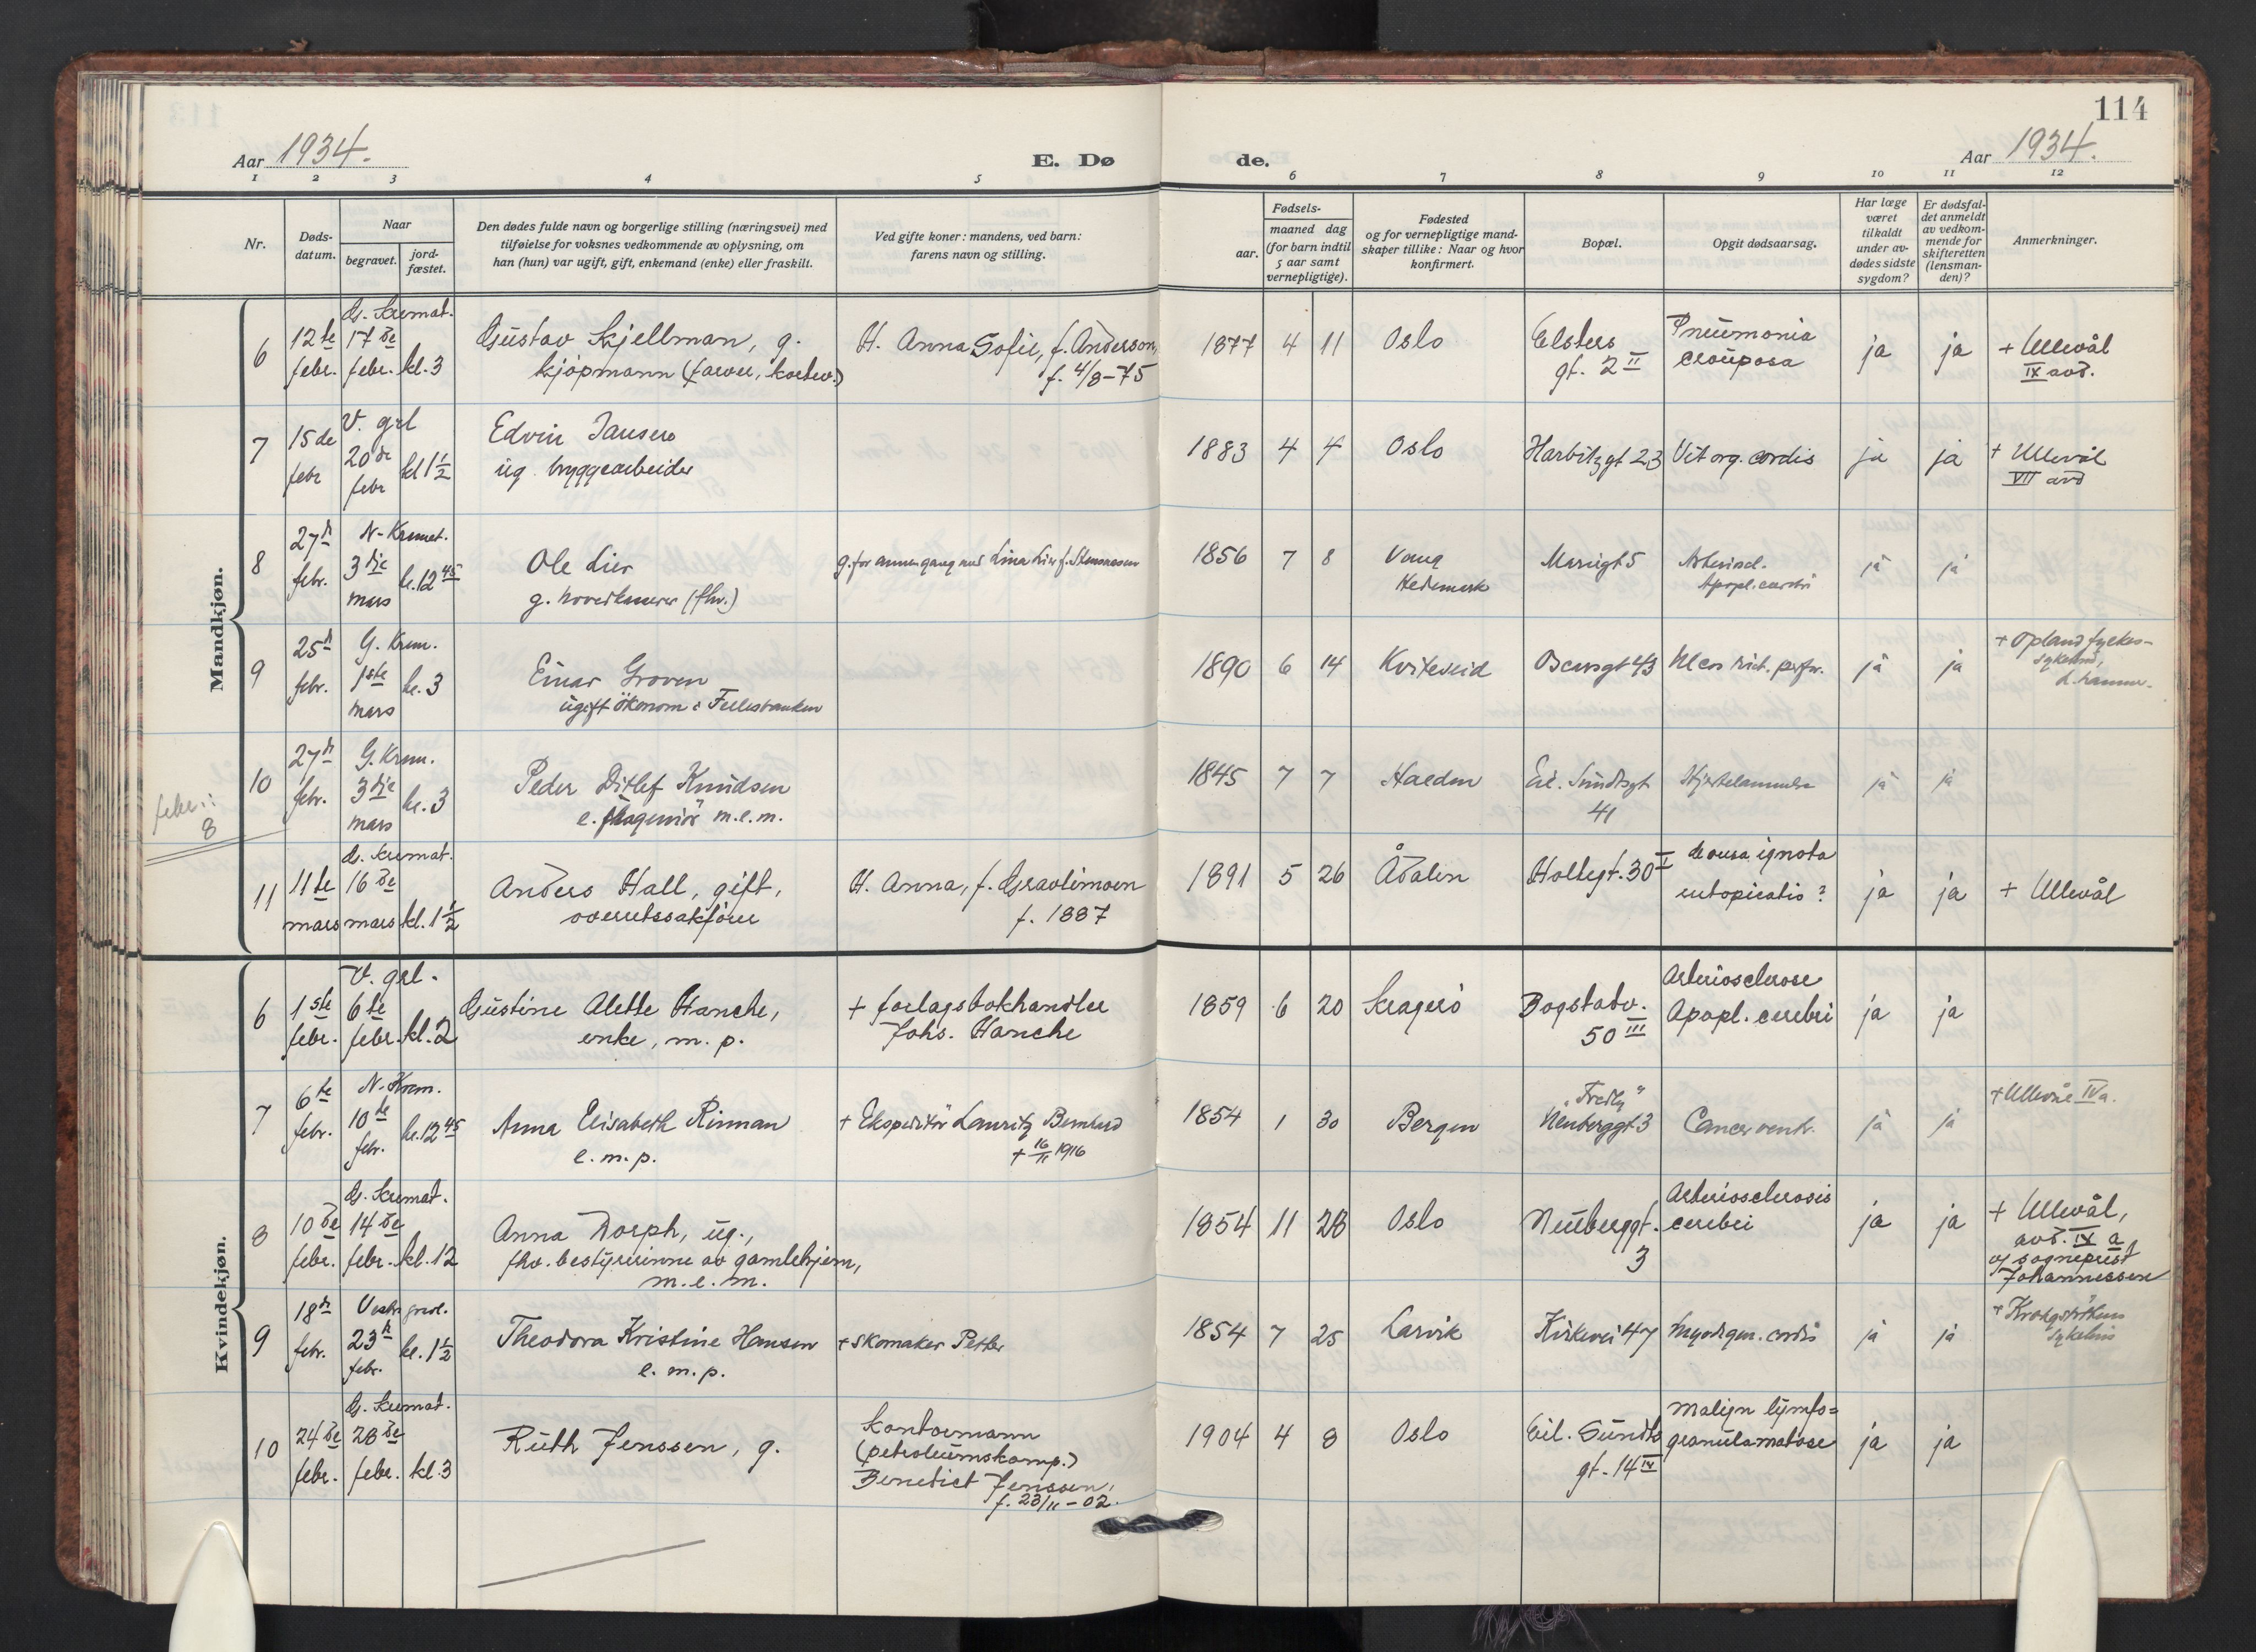 114
Aar 1934.
E. Dø de.
Aar 1934.
1 2 3 4 5 6 7 8 9 10 11 12
Nr.
Døds-
datum.
Naar
begravet.
jord-
fæstet.
Den dødes fulde navn og borgerlige stilling (næringsvei) med
tilføielse for voksnes vedkommende av oplysning, om
han (hun) var ugift, gift, enkemand (enke) eller fraskilt.
Ved gifte koner: mandens, ved barn:
farens navn og stilling.
Fødsels-
aar.
maaned dag
(for barn indtil
5 aar samt
vernepligtige).
Fødested
og for vernepligtige mand-
skaper tillike: Naar og hvor
konfirmert.
Bopæl.
Opgit dødsaarsag.
Har læge
været
tilkaldt
under av-
dødes sidste
sygdom?
Er dødsfal-
det anmeldt
av vedkom-
mende for
skifteretten
(lensman-
den)?
Anmerkninger.
Mandkjøn.
6
12te
febr.
G. Kremat.
17de
febr.
kl. 3
Gustav Kjellman, g.
kjøpmann
H. Anna Sofie, f. Andersson,
f. 4/8-75
1877 4 11
Oslo
gt. 2 II
Pneumonia
crouposa
ja
ja
+ Ullevål
IX avd.
7
15de
febr
V. grl
20de
febr
kl 1½
Edvin Jansen
ug. bryggearbeider
1883 4 4
Oslo
Harbitzgt 23
Vit. org. cordis
ja
ja
+ Ullevål
VII avd
8
27d
febr.
N-Kremat.
3dje
mars
kl. 12 45
Ole Lier
g. hovedkasserer (fhv.)
g. for annen gang med Lina Lier f.
1856 7 8
Vang
Hedemark
5
Arteriscl.
Apopl. cerebri
ja
ja
9
25d
febr.
G. Krem.
1ste
mars
kl. 3
Einar Groven
ugift økonom i Fellesbanken
1890 6 14
Kviteseid
Oscarsgt 43
Ulcus
ja
ja
+ Opland fylkes-
sykehus,
L.hammer.
febr.:
8
10
27d
febr.
G. Krem.
3dje
mars
kl. 3
Peder Ditlef Knudsen
m.e.m.
1845 7 7
Halden
Eil. Sundtsgt
41
Hjertelammelse
ja
ja
11
11te
mars
G. Kremat.
16de
mars
kl. 1½
Anders Hall, gift,
overretssakfører
H. Anna, f. Gravlimoen
f. 1887
1891 5 26
Ådalen
Holtegt. 30 I
causa ignota
?
ja
ja
+ Ullevål
Kvindekjøn.
6
1ste
febr.
V. grl.
6te
febr.
kl. 2
Gustine Alette Hanche,
enke, m. p.
+ forlagsbokhandler
Johs. Hanche
1859 6 20
Kragerø
Bogstadv.
50 III
Arteriosclerose
Apopl. cerebri
ja
ja
7
6te
febr.
N-Krem.
10de
febr.
kl. 12 45
Anna Elisabeth Rinman
e. m. p.
+ Ekspeditør Lauritz Bernhard
+ 16/11 1916
1854 1 30
Bergen
Neuberggt 3
Cancer ventr.
ja
ja
+ Ullevål IV a.
8
10de
febr.
G. Kremat.
14de
febr.
kl. 12
Anna Dorph, ug.,
fhv. bestyrerinne av gamlehjem,
m. e. m.
1854 11 28
Oslo
Neuberggt.
3
Arteriosclerosis
cerebri
ja
ja
+ Ullevål,
avd. IX a
v/ sogneprest
Johannessen
9
18d
febr.
Vestre gravl.
23d
febr.
kl. 1½
Theodora Kristine Hansen
e. m. p.
+ skomaker Petter
1854 7 25
Larvik
Kirkevei 47
Myodegen. cordis
ja
ja
+ Krohgstøttens
sykehus
10
24de
febr.
G. Kremat.
28de
febr.
kl. 3
Ruth Jenssen, g.
kontormann
(petroleumskomp.)
Benedict Jenssen,
f. 23/11-02.
1904 4 8
Oslo
Eil. Sundts
gt. 14 IV
Malign lymfo-
granulomatose
ja
ja